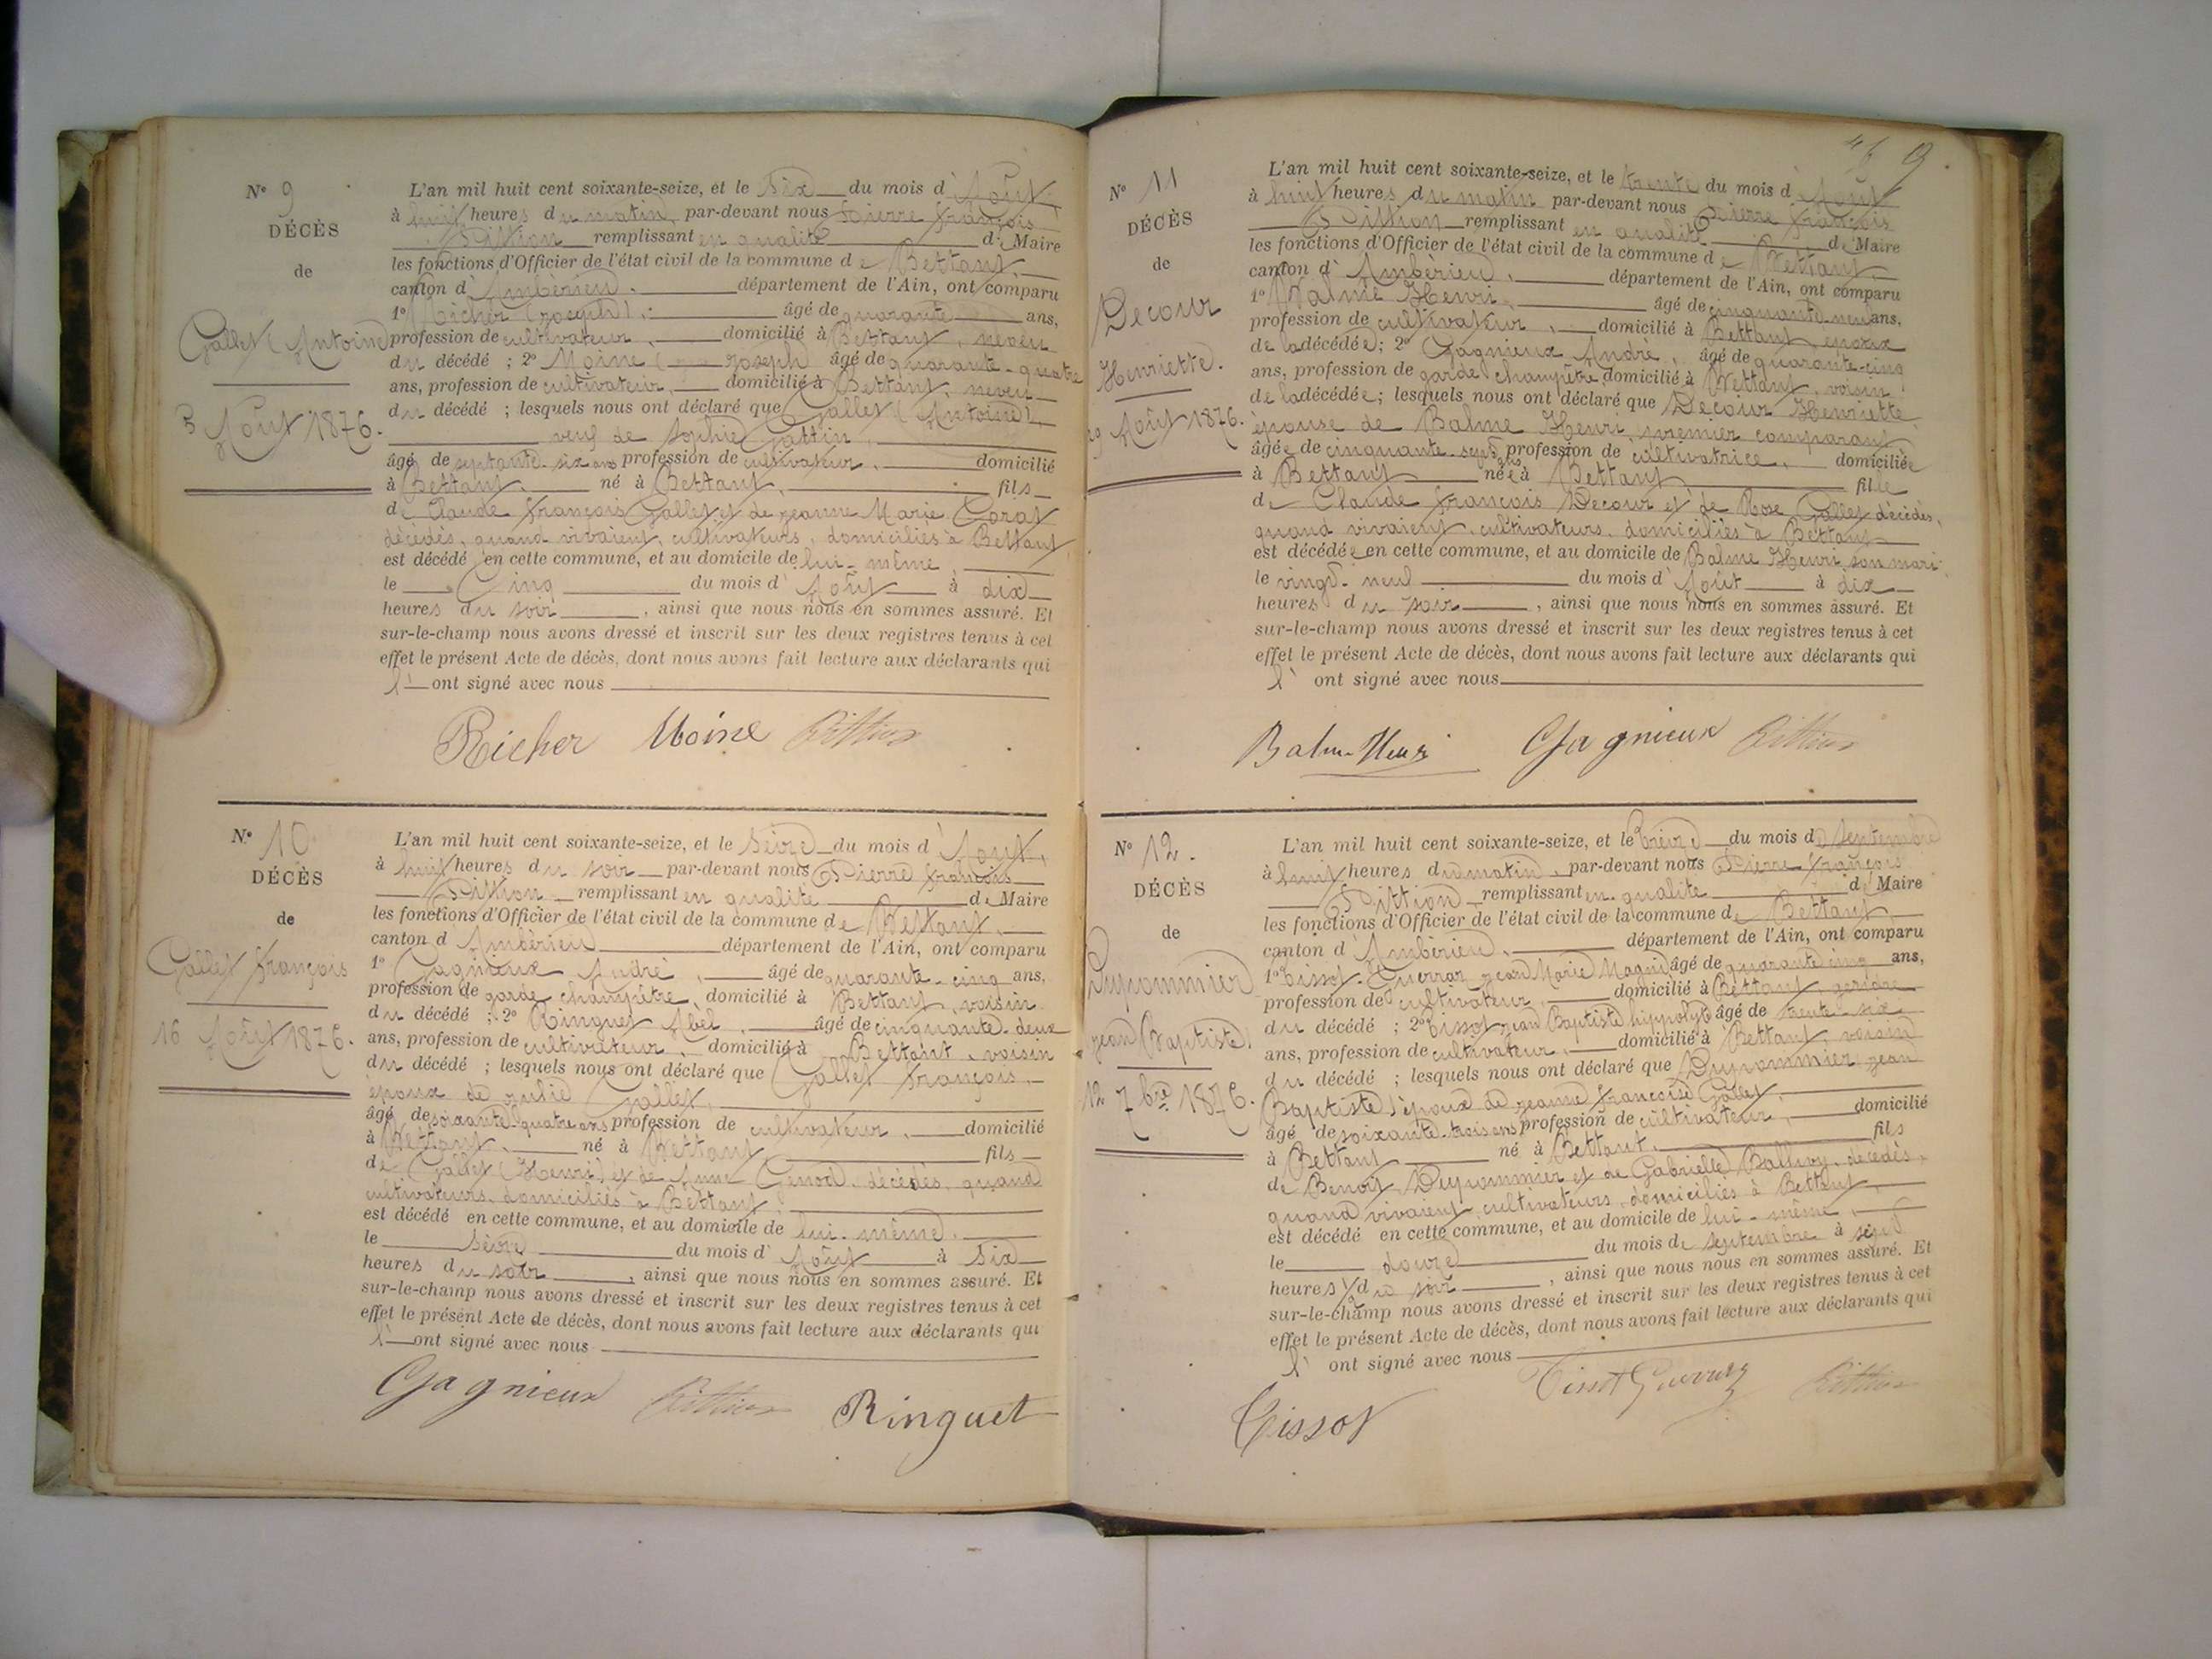 N° 9
DÉCÈS
de
Gallet (Antoine)
5 Août 1876.
L'an mil huit cent soixante-seize, et le six du mois d'Août,
à huit heures du matin, par-devant nous Pierre François
Pittion remplissant en qualité de Maire
les fonctions d'Officier de l'état civil de la commune de Bettant,
canton d'Ambérieu, département de l'Ain, ont comparu
1° Richer (Joseph), âgé de quarante ans,
profession de cultivateur, domicilié à Bettant, neveu
du décédé ; 2° Moine Joseph âgé de quarante-quatre
ans, profession de cultivateur, domicilié à Bettant, neveu
du décédé ; lesquels nous ont déclaré que Gallet (Antoine),
veuf de Sophie Gattin,
âgé de septante-six ans profession de cultivateur, domicilié
à Bettant, né à Bettant, fils
de Claude François Gallet et de Jeanne Marie
décédés, quand vivaient, cultivateurs, domiciliés à Bettant
est décédé en cette commune, et au domicile de lui-même,
le Cinq du mois d'Août à dix
heures du soir, ainsi que nous nous en sommes assuré. Et
sur-le-champ nous avons dressé et inscrit sur les deux registres tenus à cet
effet le présent Acte de décès, dont nous avons fait lecture aux déclarants qui
l'ont signé avec nous
Richer Moine Pittion
N° 10
DÉCÈS
de
Gallet François
16 Août 1876.
L'an mil huit cent soixante-seize, et le seize du mois d'Août,
à huit heures du soir par-devant nous Pierre François
Pittion remplissant en qualité de Maire
les fonctions d'Officier de l'état civil de la commune de Bettant,
canton d'Ambérieu département de l'Ain, ont comparu
1° Gagnieux André, âgé de quarante-cinq ans,
profession de garde champêtre, domicilié à Bettant, voisin
du décédé ; 2° Ringuet Abel, âgé de cinquante-deux
ans, profession de cultivateur, domicilié à Bettant, voisin
du décédé ; lesquels nous ont déclaré que Gallet François,
époux de Julie Gallet,
âgé de soixante-quatre ans profession de cultivateur, domicilié
à Bettant, né à Bettant fils
de Gallet (Henri) et de Anne Genod, décédés, quand
cultivateurs, domiciliés à Bettant,
est décédé en cette commune, et au domicile de lui-même,
le seize du mois d'Août à six
heures du soir, ainsi que nous nous en sommes assuré. Et
sur-le-champ nous avons dressé et inscrit sur les deux registres tenus à cet
effet le présent Acte de décès, dont nous avons fait lecture aux déclarants qui
l'ont signé avec nous
Gagnieux Pittion Ringuet
9.
N° 11
DÉCÈS
de
Decour
Henriette.
29 Août 1876.
L'an mil huit cent soixante-seize, et le trente du mois d'Août
à huit heures du matin par-devant nous Pierre François
Pittion remplissant en qualité de Maire
les fonctions d'Officier de l'état civil de la commune de Bettant,
canton d'Ambérieu, département de l'Ain, ont comparu
1° Balme Henri, âgé de cinquante-neuf ans,
profession de cultivateur, domicilié à Bettant, époux
de la décédée ; 2° Gagnieux André, âgé de quarante-cinq
ans, profession de garde champêtre domicilié à Bettant, voisin
de la décédée ; lesquels nous ont déclaré que Decour Henriette
épouse de Balme Henri, premier comparant
âgée de cinquante-sept ans profession de cultivatrice, domiciliée
à Bettant née à Bettant fille
de Claude François Decour et de Rose Gallet décédés,
quand vivaient, cultivateurs, domiciliés à Bettant
est décédée en cette commune, et au domicile de Balme Henri son mari
le vingt-neuf du mois d'Août à dix
heures du soir, ainsi que nous nous en sommes assuré. Et
sur-le-champ nous avons dressé et inscrit sur les deux registres tenus à cet
effet le présent Acte de décès, dont nous avons fait lecture aux déclarants qui
l'ont signé avec nous
Balme Henri Gagnieux Pittion
N° 12.
DÉCÈS
de
Duprommier
Jean (Baptiste)
12 7bre 1876.
L'an mil huit cent soixante-seize, et le treize du mois de Septembre
à huit heures du matin, par-devant nous Pierre François
Pittion remplissant en qualité de Maire
les fonctions d'Officier de l'état civil de la commune de Bettant,
canton d'Ambérieu, département de l'Ain, ont comparu
1° Tissot-Guerraz Jean Marie âgé de quarante cinq ans,
profession de cultivateur, domicilié à Bettant, gendre
du décédé ; 2° Tissot Jean Baptiste hippolyte âgé de trente-six
ans, profession de cultivateur, domicilié à Bettant, voisin
du décédé ; lesquels nous ont déclaré que Duprommier Jean
Baptiste, époux de Jeanne Françoise Gallet,
âgé de soixante-trois ans profession de cultivateur, domicilié
à Bettant né à Bettant, fils
de Benoit Duprommier et de Gabrielle Ballivy, décédés,
quand vivaient, cultivateurs, domiciliés à Bettant,
est décédé en cette commune, et au domicile de lui-même,
le douze du mois de septembre à sept
heures 1/2 du soir, ainsi que nous nous en sommes assuré. Et
sur-le-champ nous avons dressé et inscrit sur les deux registres tenus à cet
effet le présent Acte de décès, dont nous avons fait lecture aux déclarants qui
l'ont signé avec nous
Tissot Tissot Guerraz Pittion